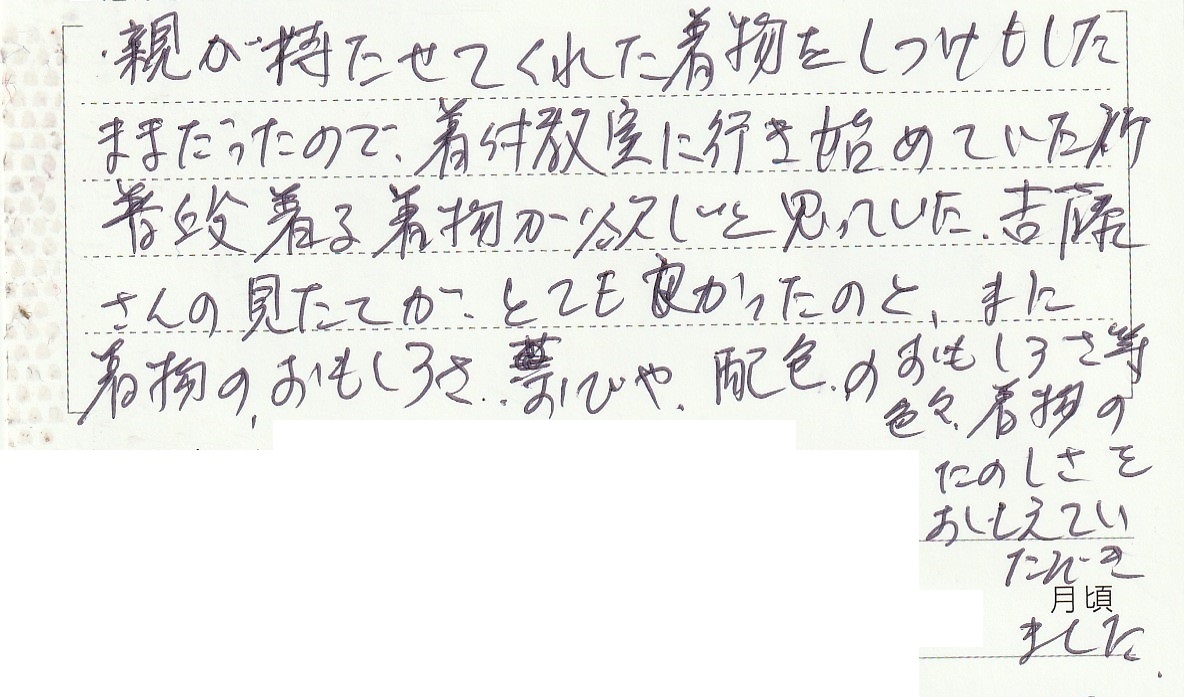 ・親が持たせてくれた着物をしつけもした
ままだったので、着付教室に行き始めていた所
普段着る着物が欲しいと思っていた、吉藤
さんの見たてがとても良かったのと、まに
着物の、おもしろさ、おびや、配色、のおもしろさ等
色々、着物の
たのしさを
おしえてい
ただき
月頃
ました